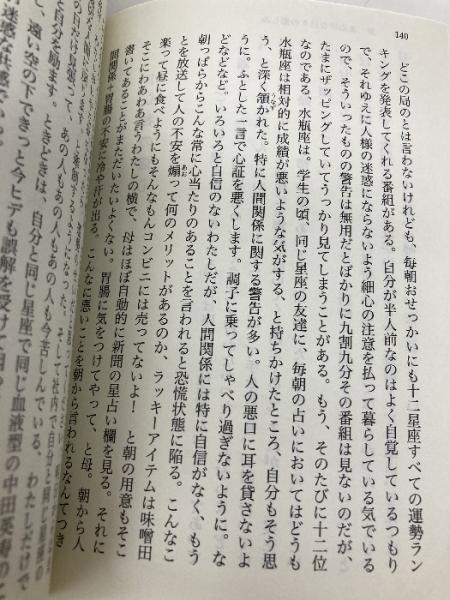 140
どこの局のとは言わないけれども、毎朝おせっかいにも十二星座すべての運勢ラン
キングを発表してくれる番組がある。自分が半人前なのはよく自覚しているつもり
で、それゆえに人様の迷惑にならないよう細心の注意を払って暮らしている気でいる
ので、そういったものの警告は無用だとばかりに九割九分その番組は見ないのだが、
たまにザッピングしていてうっかり見てしまうことがある。もう、そのたびに十二位
なのである、水瓶座は。学生の頃、同じ星座の友達に、毎朝の占いにおいてはどうも
水瓶座は相対的に成績が悪いような気がする、と持ちかけたところ、自分もそう思
う、と深く頷かれた。特に人間関係に関する警告が多い。人の悪口に耳を貸さないよ
うなず
うに。ふとした一言で心証を悪くします。調子に乗ってしゃべり過ぎないように。な
どなどなど。いろいろと自信のないわたしだが、人間関係には特に自信がなく、もう
朝っぱらからこんな常に心当たりのあることを言われると恐慌状態に陥る。こんなこ
とを放送して人の不安を煽って何のメリットがあるのか、ラッキーアイテムは味噌田
あお
楽って昼に食べようにもそんなもんコンビニには売ってないよ！　と朝の用意もそこ
そこにわあわあ言うわたしの横で、母はほぼ自動的に新聞の星占い欄を見る。それに
書いてあることがまただいたいよくない。胃腸に気をつけてやって、と母。朝から人
間関係＋胃腸の不安に冷や汗が出る。こんなに悪いことを朝から言われるなんてつき